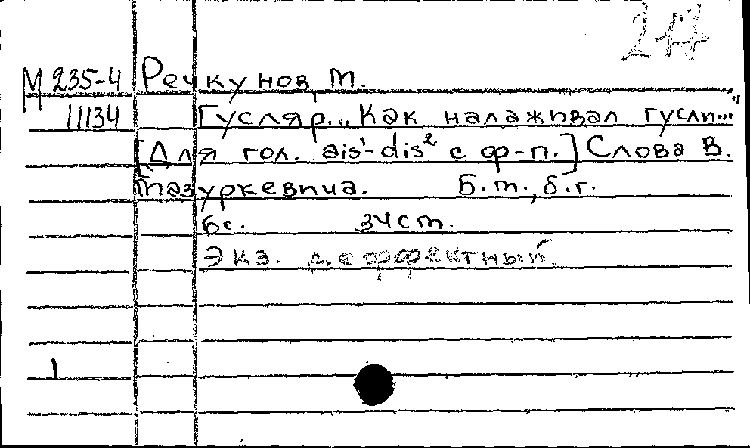 247
М 235-4 Речкунов, М.
11134 Гусляр. „Как налаживал гусли..."
[Для гол. ais¹-dis² с ф-п.] Слова В.
Мазуркевича. Б.м., б.г.
6с. 34см.
Экз. дефектный.
1